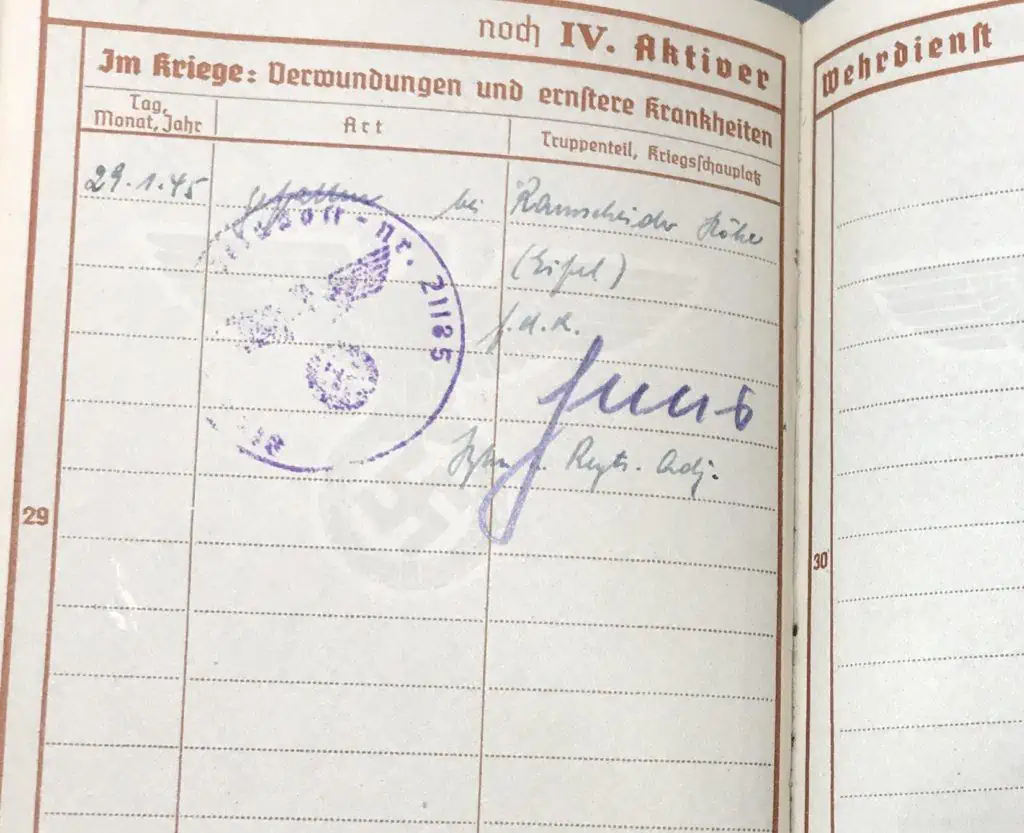 noch IV. Aktiver
Wehrdienst
Im Kriege: Verwundungen und ernstere Krankheiten
Tag, Monat, Jahr
Art
Truppenteil, Kriegsschauplatz
29.1.45 gefallen bei Ramscheider Höhe
(Eifel)
f.d.R.
Feldpost-nr. 21185
u. Regts. Adj.
29
30